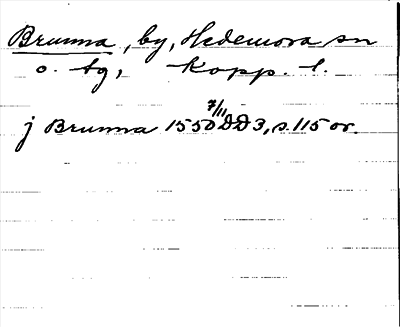 Brunna, by, Hedemora sn
o. tg, Kopp. l.
j Brunna 1550 7/11 DD3, s. 115 or.